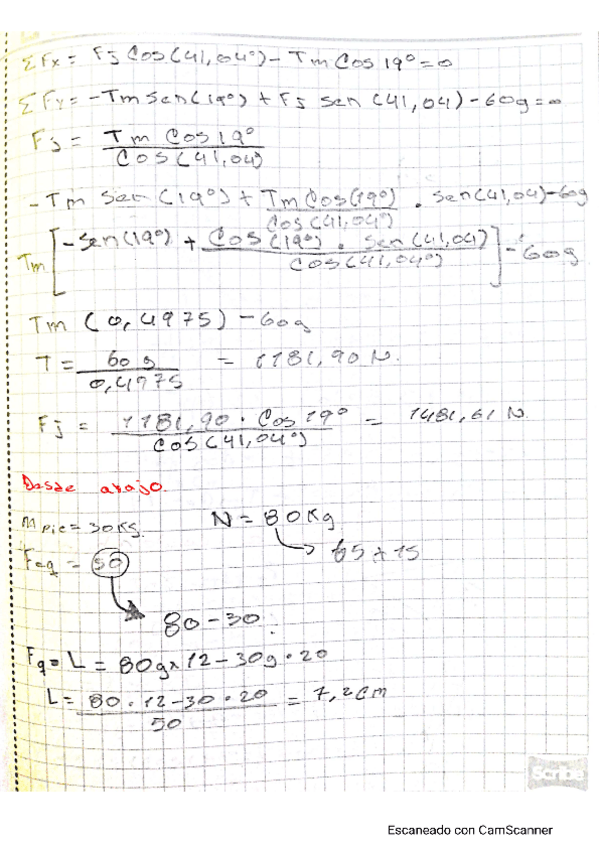 ΣFx = Fj Cos(41,04°) - Tm Cos 19° = 0
ΣFy = -Tm sen(19°) + Fj sen (41,04) - 60g = 0
Fj = Tm Cos 19°
Cos(41,04)
-Tm sen (19°) + Tm Cos(19°) . sen(41,04)-60g
Cos(41,04°)
Tm [-sen(19°) + Cos(19°) . sen (41,04)] - 60g
Cos(41,04°)
Tm (0,4975) - 60g
T = 60 g = 1181,90 N.
0,4975
Fj = 1181,90 . Cos 19° = 1481,61 N
Cos(41,04°)
Desde abajo.
M pie = 30Kg. N = 80Kg
65 + 15
Feq = 50
80-30
Fq = L = 80g x 12 - 30g . 20
L = 80 . 12 - 30 . 20 = 7,2cm
50
Scribe
Escaneado con CamScanner